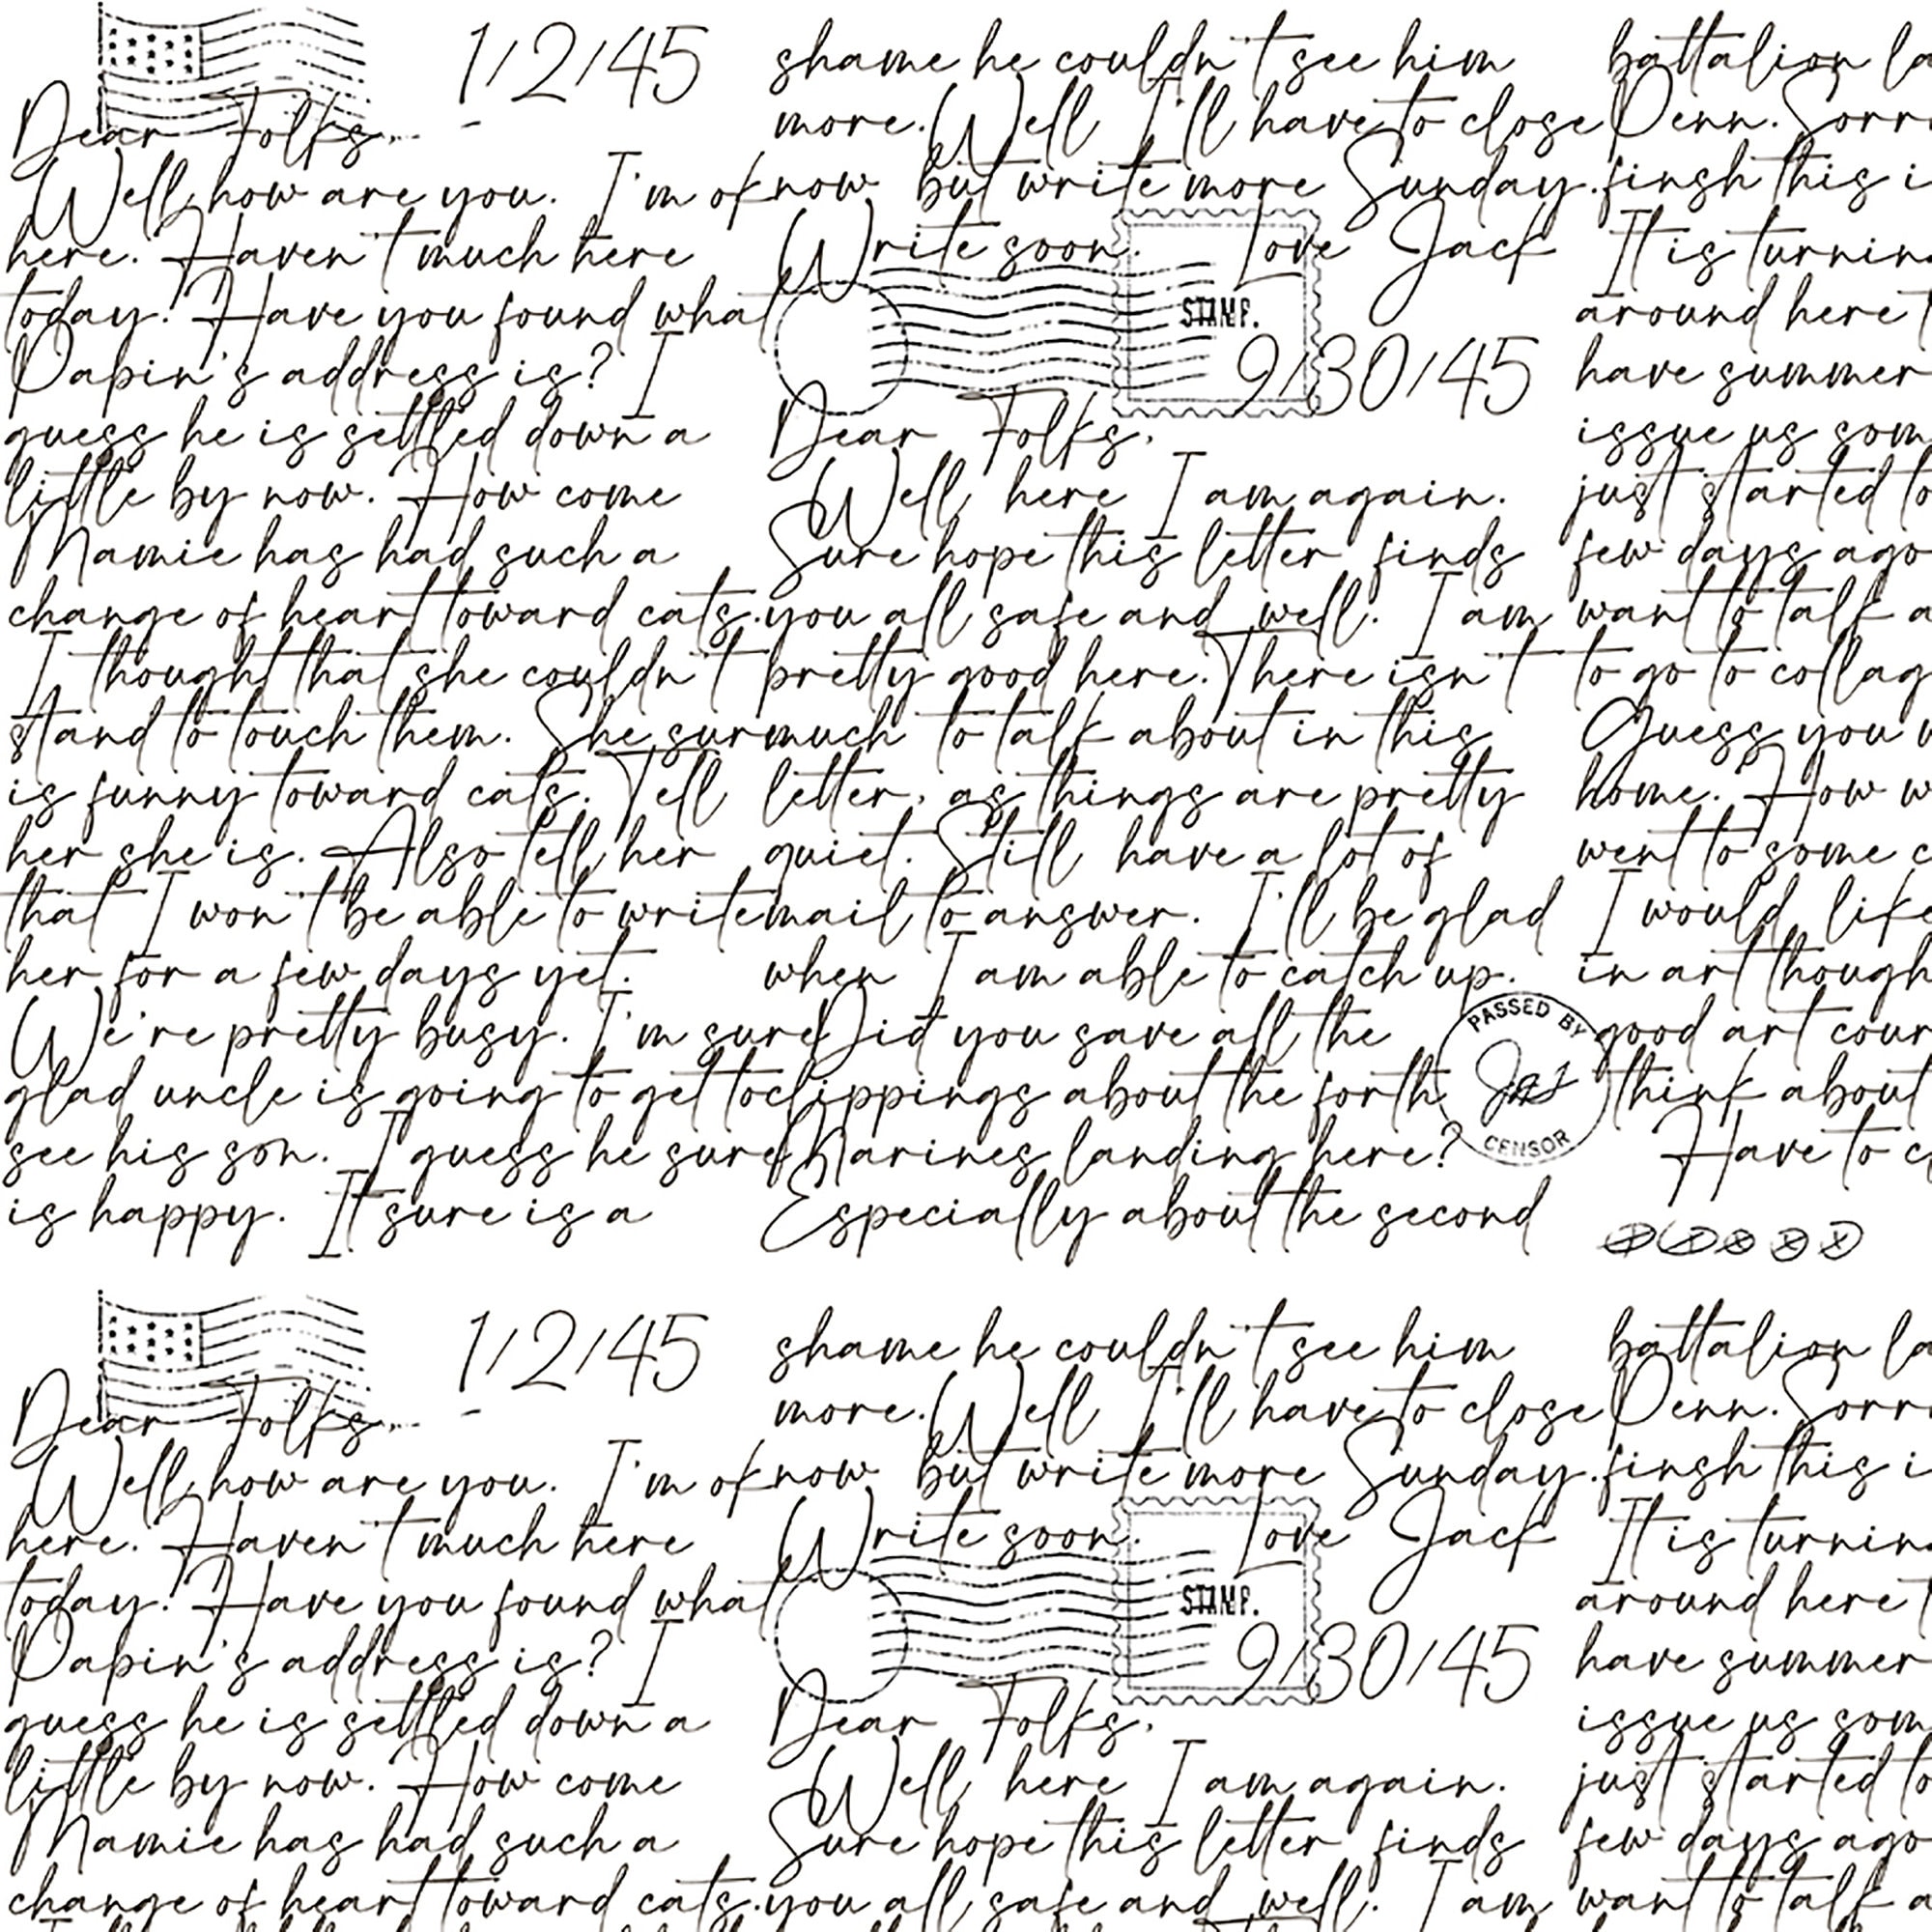 1/2/45
Dear Folks,
Well, how are you. I'm ok
here. Haven't much here
today. Have you found what
Papin's address is? I
guess he is settled down a
little by now. How come
Mamie has had such a
change of heart toward cats.
I thought that she couldn't
stand to touch them. She sur
is funny toward cats. Tell
her she is. Also tell her
that I won't be able to write
her for a few days yet.
We're pretty busy. I'm sure
glad uncle is going to get to
see his son. I guess he sure
is happy. It sure is a
shame he couldn't see him
more. Well I'll have to close
now but write more Sunday.
Write soon. Love Jack
STAMP.
9/30/45
Dear Folks,
Well, here I am again.
Sure hope this letter finds
you all safe and well. I am
pretty good here. There isn't
much to talk about in this
letter, as things are pretty
quiet. Still have a lot of
mail to answer. I'll be glad
when I am able to catch up.
Did you save all the
clippings about the forth
Marines landing here?
Especially about the second
PASSED BY
CENSOR
battalion la
Penn. Sorr
finsh this i
It is turnin
around here t
have summer
issue us som
just started to
few days ago
want to talk a
to go to collag
Guess you w
home. How w
went to some c
I would like
in art though
good art cour
think about
Have to c
1/2/45
Dear Folks,
Well, how are you. I'm ok
here. Haven't much here
today. Have you found what
Papin's address is? I
guess he is settled down a
little by now. How come
Mamie has had such a
change of heart toward cats.
shame he couldn't see him
more. Well I'll have to close
now but write more Sunday.
Write soon. Love Jack
STAMP.
9/30/45
Dear Folks,
Well, here I am again.
Sure hope this letter finds
you all safe and well. I am
battalion la
Penn. Sorr
finsh this i
It is turnin
around here t
have summer
issue us som
just started to
few days ago
want to talk a